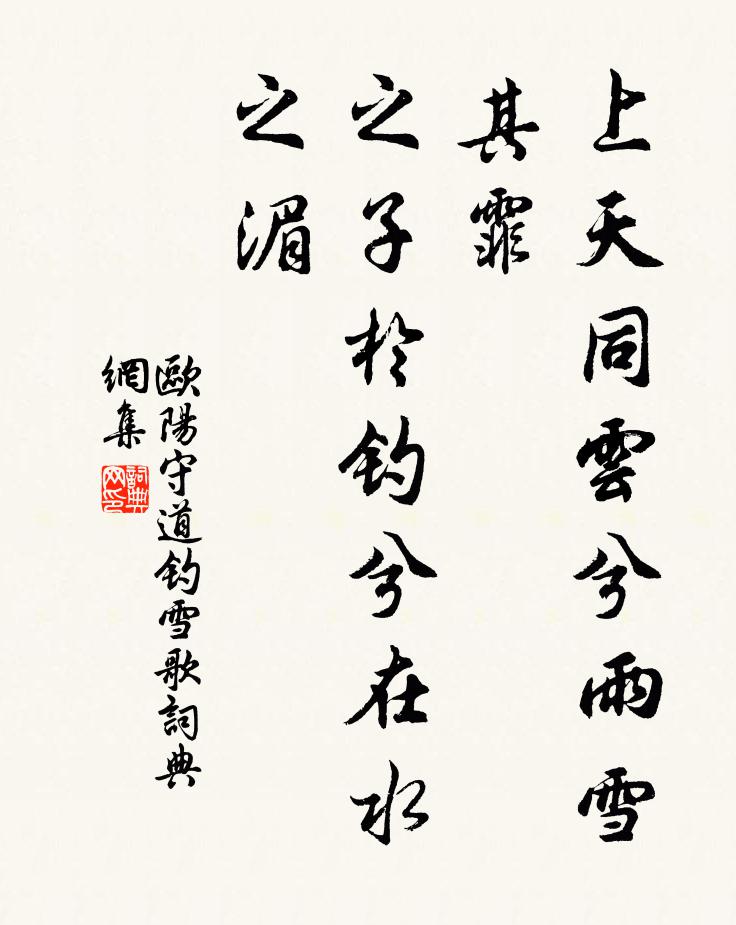 上天同雲兮雨雪
其霏
之子於釣兮在水
之湄
歐陽守道釣雪歌詞典
網集
詞典網印